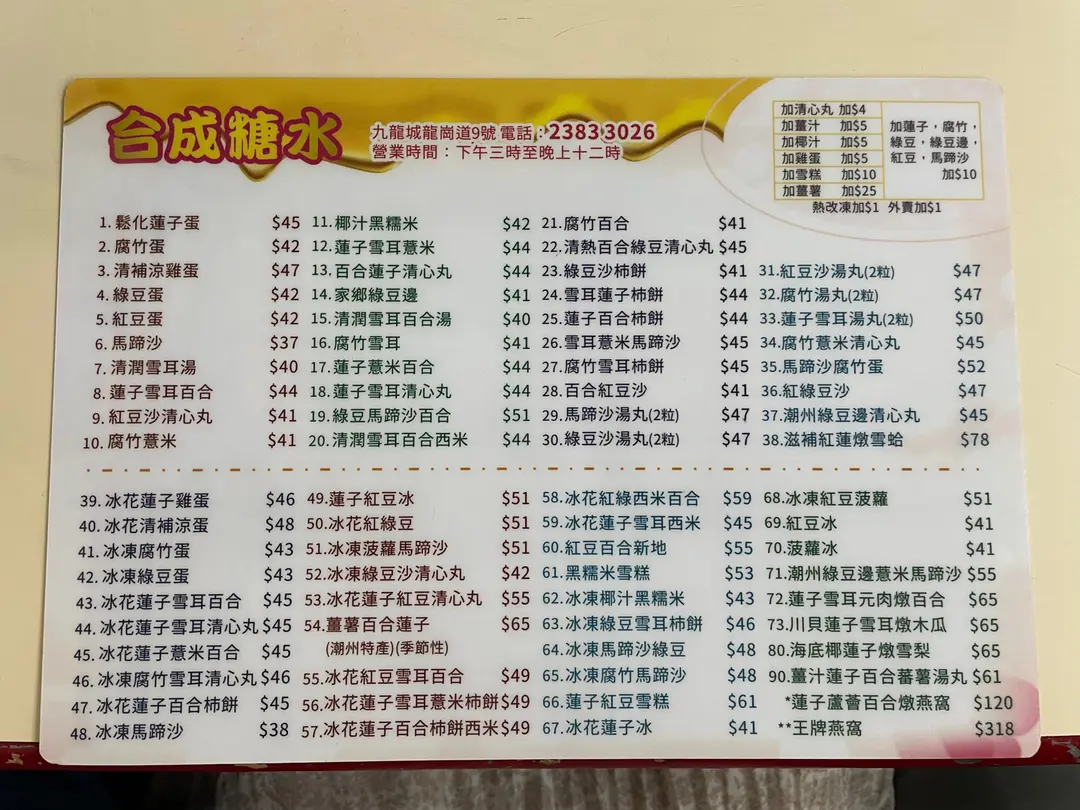 合成糖水
九龍城龍崗道9號 電話：2383 3026
營業時間：下午三時至晚上十二時
加清心丸 加$4
加薑汁 加$5
加椰汁 加$5
加雞蛋 加$5
加雪糕 加$10
加薑薯 加$25
加蓮子，腐竹，
綠豆，綠豆邊，
紅豆，馬蹄沙
加$10
熱改凍加$1 外賣加$1
1. 鬆化蓮子蛋 $45
2. 腐竹蛋 $42
3. 清補涼雞蛋 $47
4. 綠豆蛋 $42
5. 紅豆蛋 $42
6. 馬蹄沙 $37
7. 清潤雪耳湯 $40
8. 蓮子雪耳百合 $44
9. 紅豆沙清心丸 $41
10. 腐竹薏米 $41
11. 椰汁黑糯米 $42
12. 蓮子雪耳薏米 $44
13. 百合蓮子清心丸 $44
14. 家鄉綠豆邊 $41
15. 清潤雪耳百合湯 $40
16. 腐竹雪耳 $41
17. 蓮子薏米百合 $44
18. 蓮子雪耳清心丸 $44
19. 綠豆馬蹄沙百合 $51
20. 清潤雪耳百合西米 $44
21. 腐竹百合 $41
22. 清熱百合綠豆清心丸 $45
23. 綠豆沙柿餅 $41
24. 雪耳蓮子柿餅 $44
25. 蓮子百合柿餅 $44
26. 雪耳薏米馬蹄沙 $45
27. 腐竹雪耳柿餅 $45
28. 百合紅豆沙 $41
29. 馬蹄沙湯丸(2粒) $47
30. 綠豆沙湯丸(2粒) $47
31. 紅豆沙湯丸(2粒) $47
32. 腐竹湯丸(2粒) $47
33. 蓮子雪耳湯丸(2粒) $50
34. 腐竹薏米清心丸 $45
35. 馬蹄沙腐竹蛋 $52
36. 紅綠豆沙 $47
37. 潮州綠豆邊清心丸 $45
38. 滋補紅蓮燉雪蛤 $78
39. 冰花蓮子雞蛋 $46
40. 冰花清補涼蛋 $48
41. 冰凍腐竹蛋 $43
42. 冰凍綠豆蛋 $43
43. 冰花蓮子雪耳百合 $45
44. 冰花蓮子雪耳清心丸 $45
45. 冰花蓮子薏米百合 $45
46. 冰凍腐竹雪耳清心丸 $46
47. 冰花蓮子百合柿餅 $45
48. 冰凍馬蹄沙 $38
49. 蓮子紅豆冰 $51
50. 冰花紅綠豆 $51
51. 冰凍菠蘿馬蹄沙 $51
52. 冰凍綠豆沙清心丸 $42
53. 冰花蓮子紅豆清心丸 $55
54. 薑薯百合蓮子 $65
(潮州特產)(季節性)
55. 冰花紅豆雪耳百合 $49
56. 冰花蓮子雪耳薏米柿餅 $49
57. 冰花蓮子百合柿餅西米 $49
58. 冰花紅綠西米百合 $59
59. 冰花蓮子雪耳西米 $45
60. 紅豆百合新地 $55
61. 黑糯米雪糕 $53
62. 冰凍椰汁黑糯米 $43
63. 冰凍綠豆雪耳柿餅 $46
64. 冰凍馬蹄沙綠豆 $48
65. 冰凍腐竹馬蹄沙 $48
66. 蓮子紅豆雪糕 $61
67. 冰花蓮子冰 $41
68. 冰凍紅豆菠蘿 $51
69. 紅豆冰 $41
70. 菠蘿冰 $41
71. 潮州綠豆邊薏米馬蹄沙 $55
72. 蓮子雪耳元肉燉百合 $65
73. 川貝蓮子雪耳燉木瓜 $65
80. 海底椰蓮子燉雪梨 $65
90. 薑汁蓮子百合蕃薯湯丸 $61
*蓮子蘆薈百合燉燕窩 $120
**王牌燕窩 $318